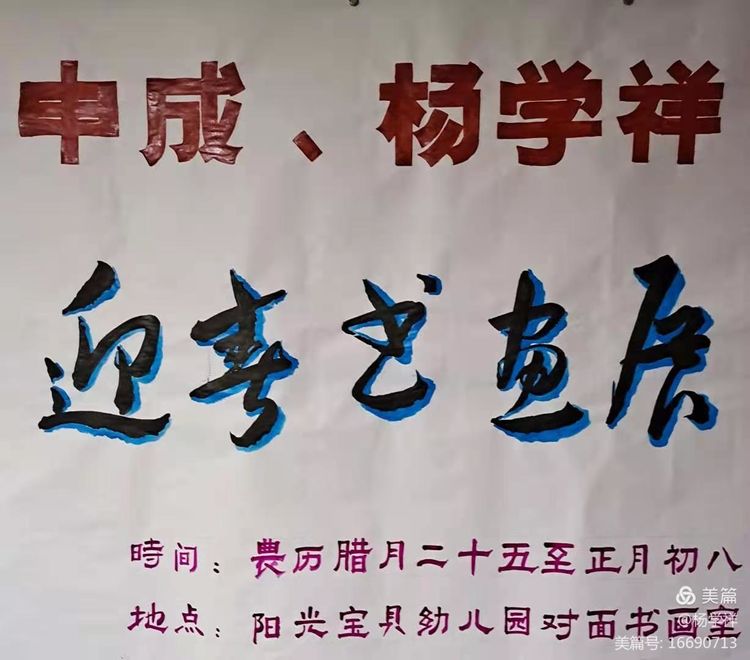 申成、杨学祥
迎春书画展
時间：農历腊月二十五至正月初八
地点：阳光宝具幼儿园对面书画室
美篇
@杨学祥
美篇号: 16690713